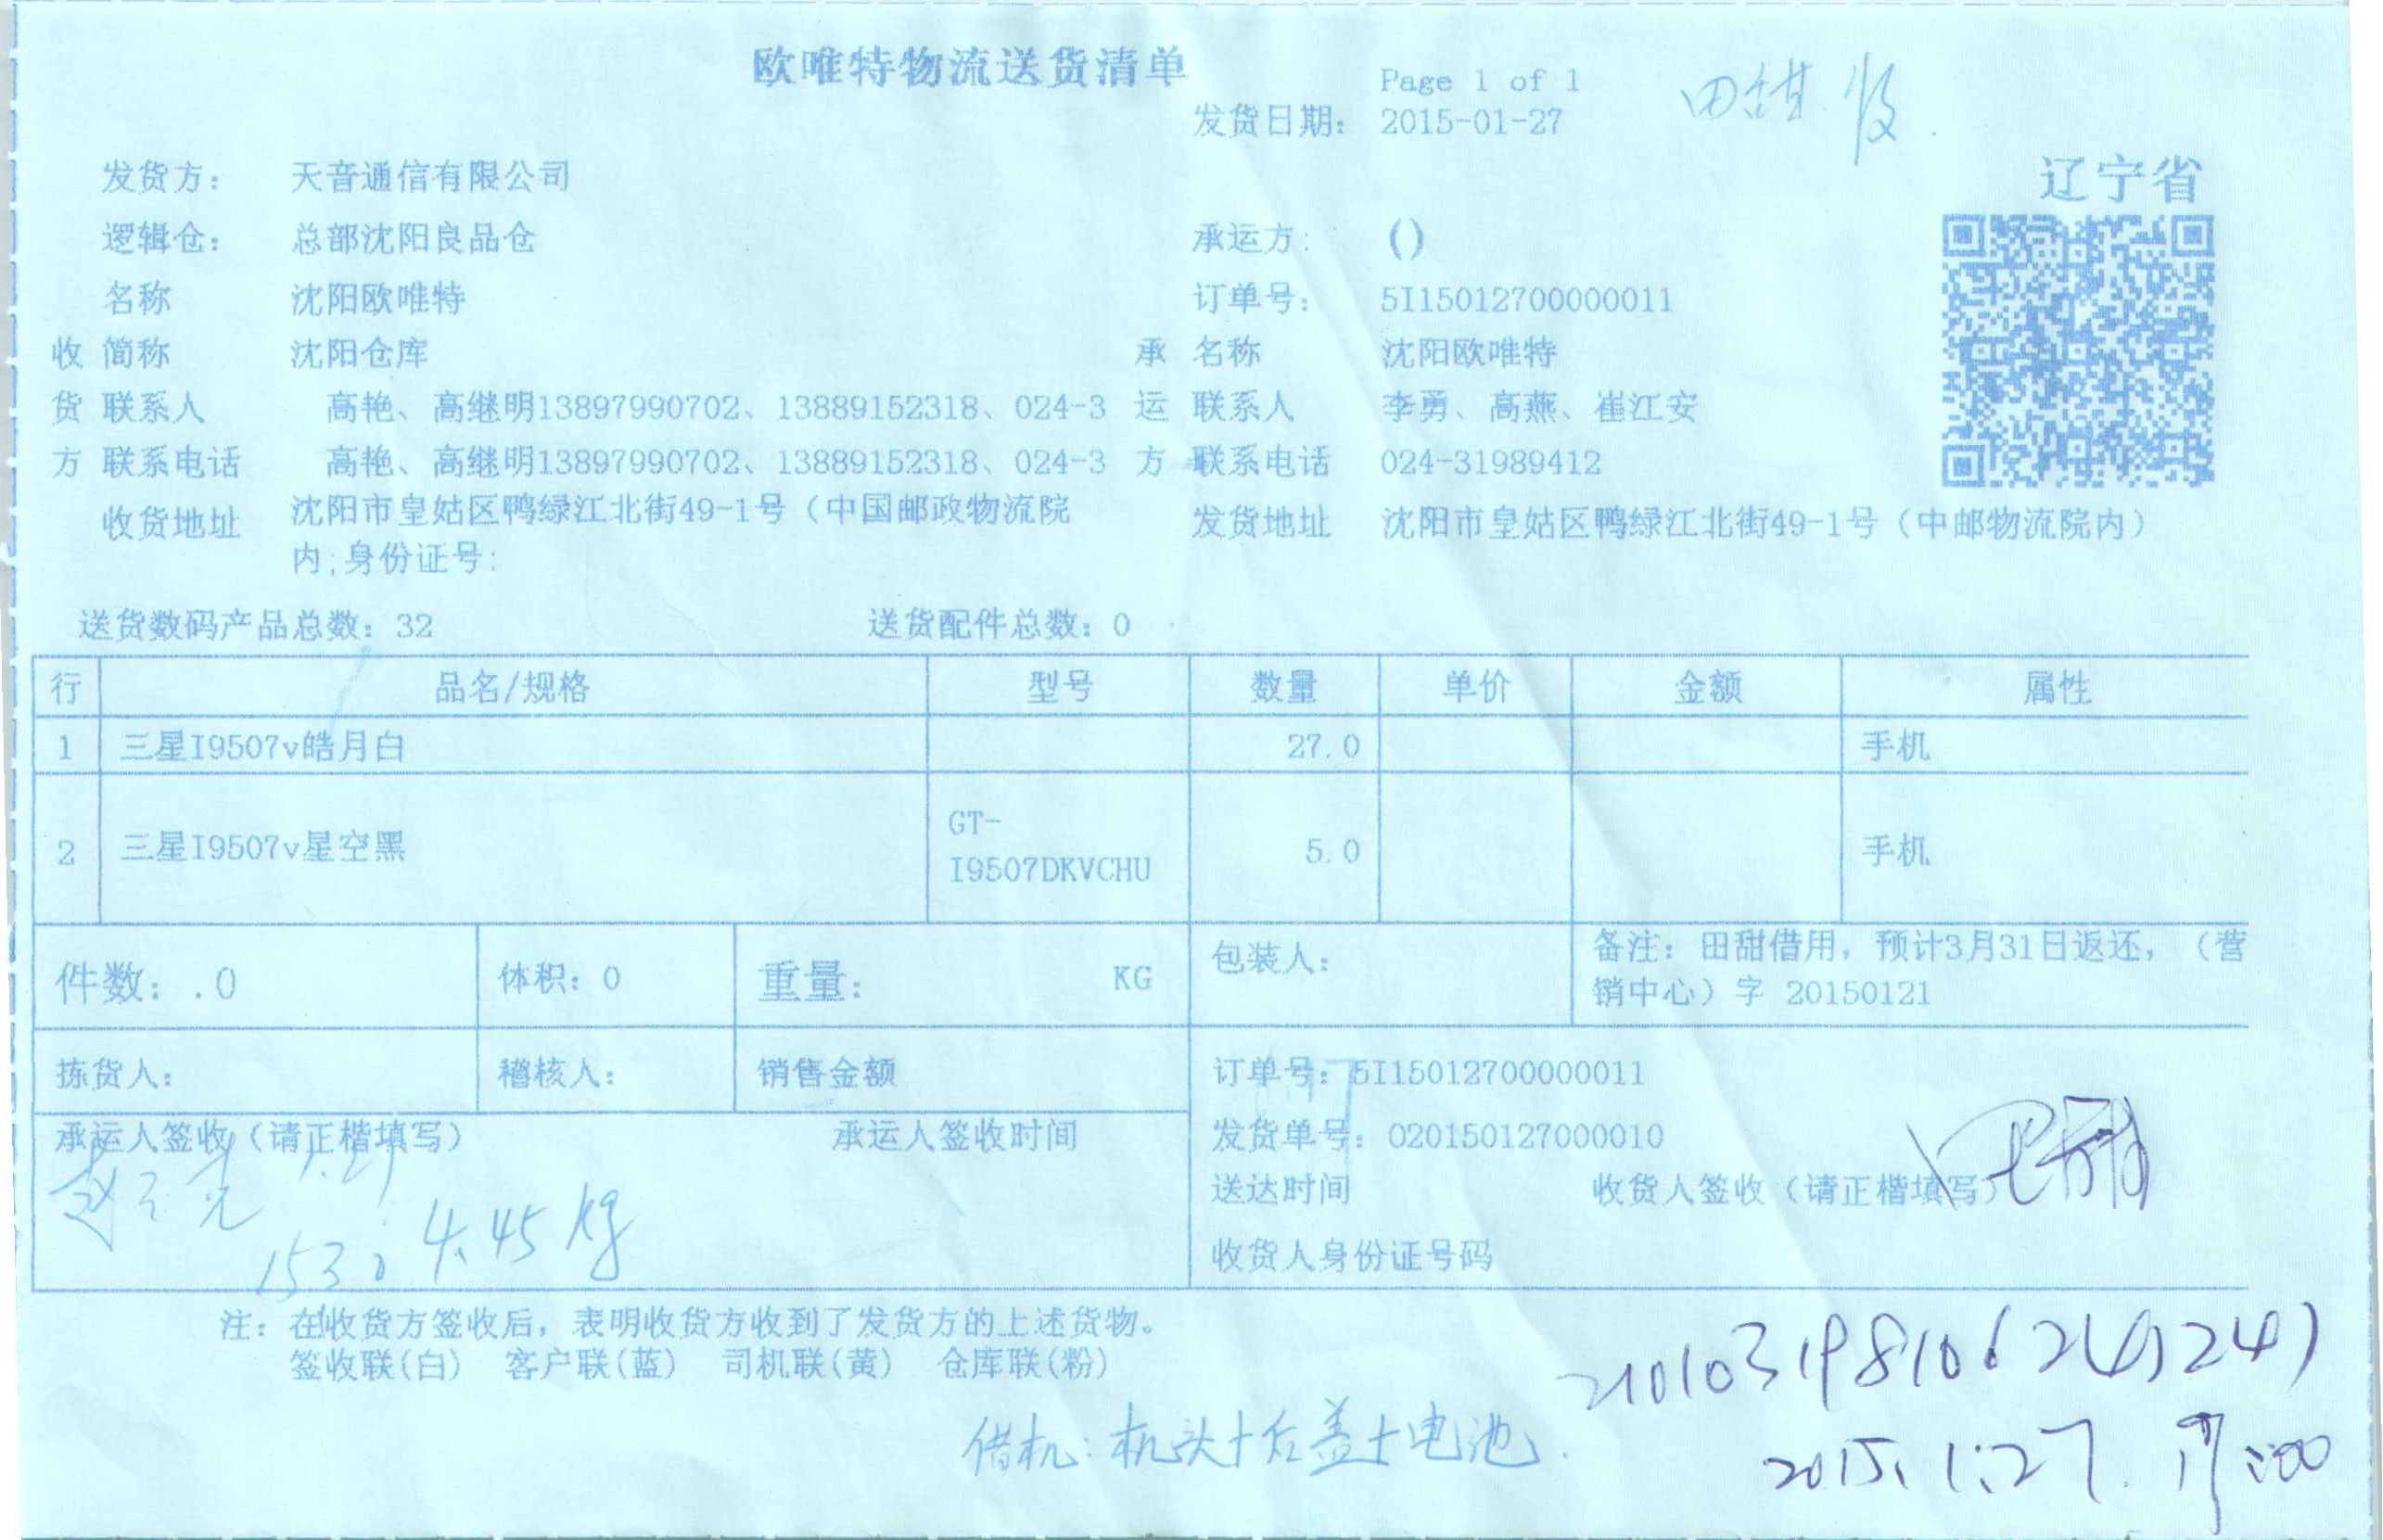 欧唯特物流送货清单
Page 1 of 1
发货日期: 2015-01-27
田甜 收
辽宁省
发货方: 天音通信有限公司
逻辑仓: 总部沈阳良品仓
承运方: ()
名称 沈阳欧唯特
订单号: 5I15012700000011
收 简称 沈阳仓库
承 名称 沈阳欧唯特
货 联系人 高艳、高继明13897990702、13889152318、024-3
运 联系人 李勇、高燕、崔江安
方 联系电话 高艳、高继明13897990702、13889152318、024-3
方 联系电话 024-31989412
收货地址 沈阳市皇姑区鸭绿江北街49-1号（中国邮政物流院
内;身份证号:
发货地址 沈阳市皇姑区鸭绿江北街49-1号（中邮物流院内）
送货数码产品总数: 32 送货配件总数: 0
行 品名/规格 型号 数量 单价 金额 属性
1 三星I9507v皓月白 27.0 手机
2 三星I9507v星空黑 GT-
I9507DKVCHU 5.0 手机
件数: .0 体积: 0 重量: KG 包装人:
备注: 田甜借用, 预计3月31日返还, （营
销中心）字 20150121
拣货人: 稽核人: 销售金额
订单号: 5I15012700000011
承运人签收（请正楷填写） 承运人签收时间
发货单号: 020150127000010
送达时间 收货人签收（请正楷填写）
1.27
1530 4.45 kg
收货人身份证号码
注: 在收货方签收后, 表明收货方收到了发货方的上述货物。
签收联(白) 客户联(蓝) 司机联(黄) 仓库联(粉)
借机: 机头+后盖+电池.
2015.1.27.